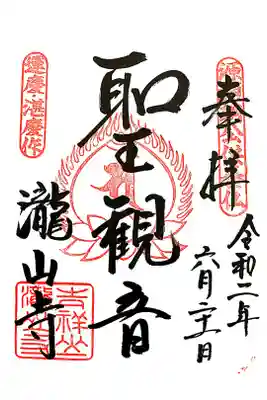 奉拝
令和二年
六月二十一日
聖観音
運慶・湛慶作
瀧山寺
吉祥山